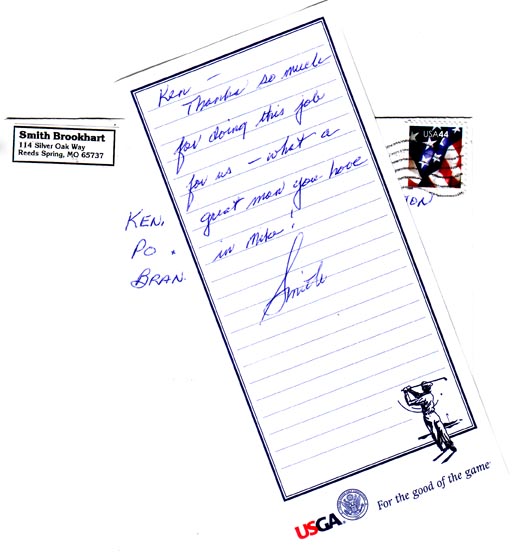 Ken —
Thanks so much
for doing this job
for us — what a
great man you have
in Mike!
Smith
Smith Brookhart
114 Silver Oak Way
Reeds Spring, MO 65737
USA 44
KEN.
PO
BRAN
USGA® For the good of the game